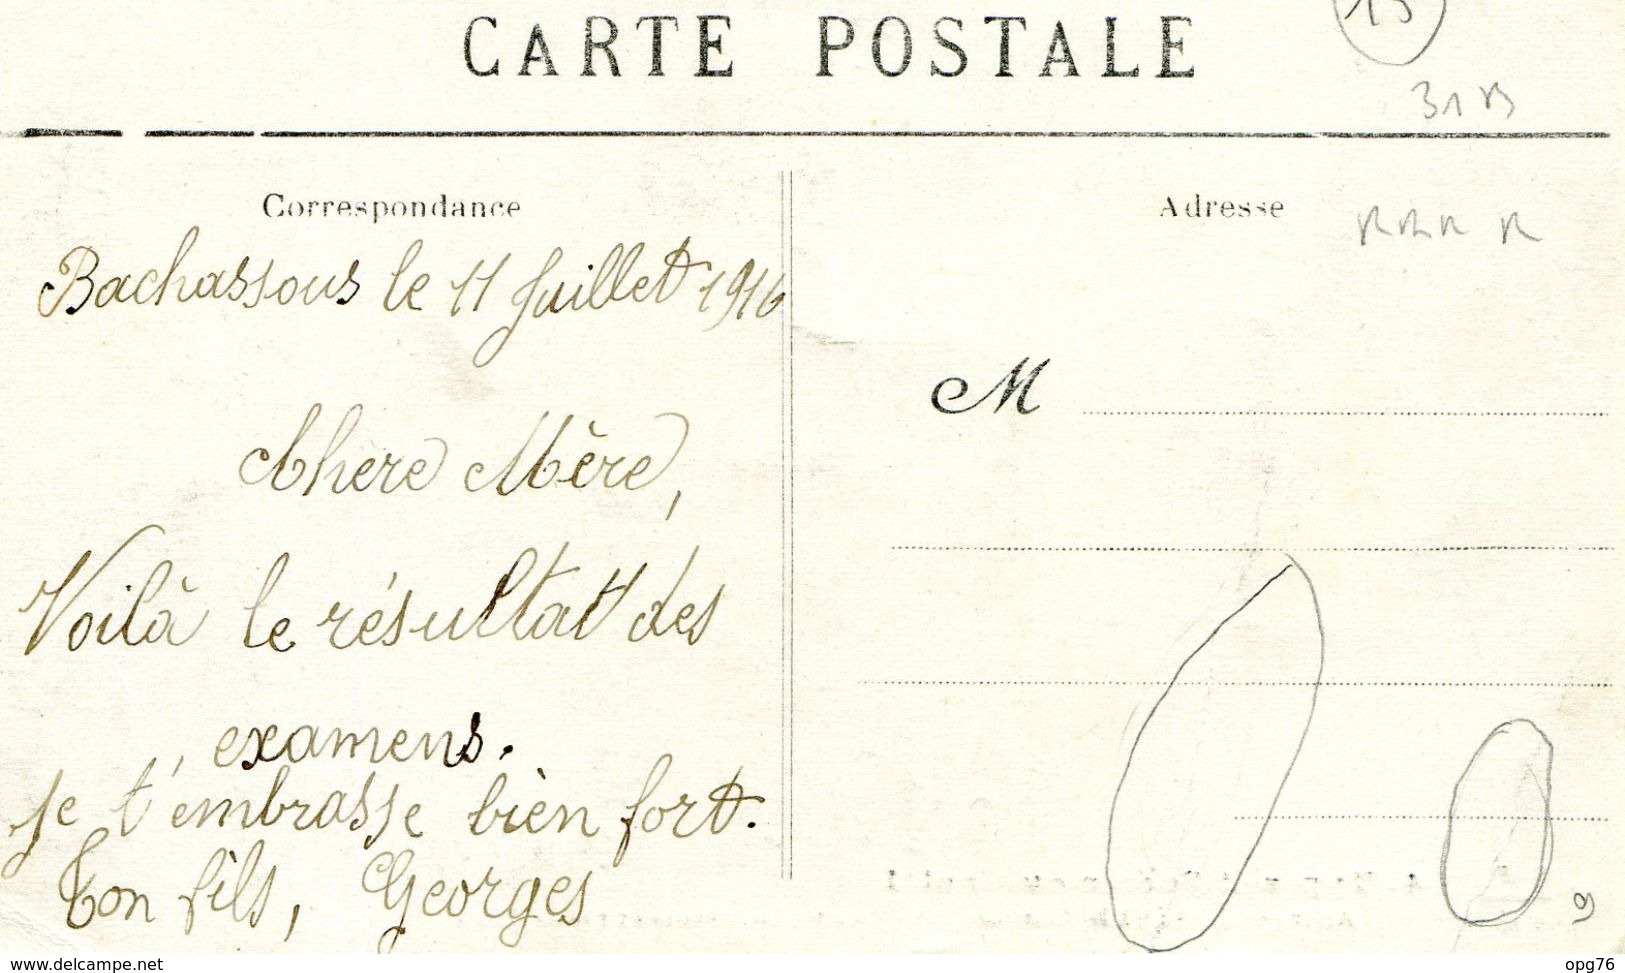 CARTE POSTALE
15
Correspondance
Adresse
Bachassous le 11 Juillet 1916
M
Chere Mère,
Voilà le résultat des
examens.
Je t'embrasse bien fort.
Ton fils, Georges
www.delcampe.net
opg76